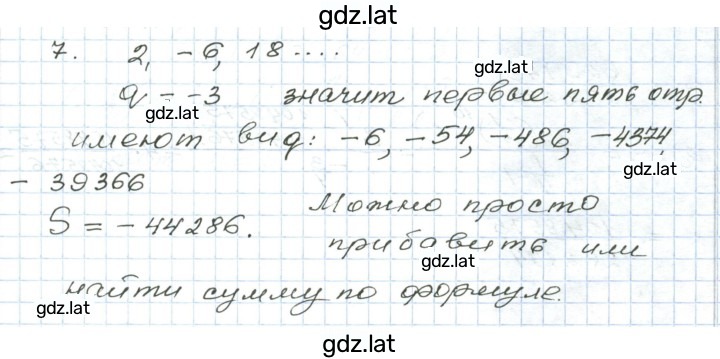 gdz.lat
7. 2, -6, 18 ....
gdz.lat
q = -3 значит первые пять отр.
gdz.lat
имеют вид: -6, -54, -486, -4374,
gdz.lat
- 39366
S = -44286. Можно просто
прибавить или
gdz.lat
найти сумму по формуле.
gdz.lat
gdz.lat